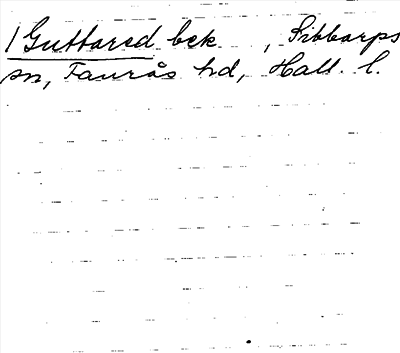 /Guttared bck , Sibbarps
sn, Faurås hd, Hall. l.